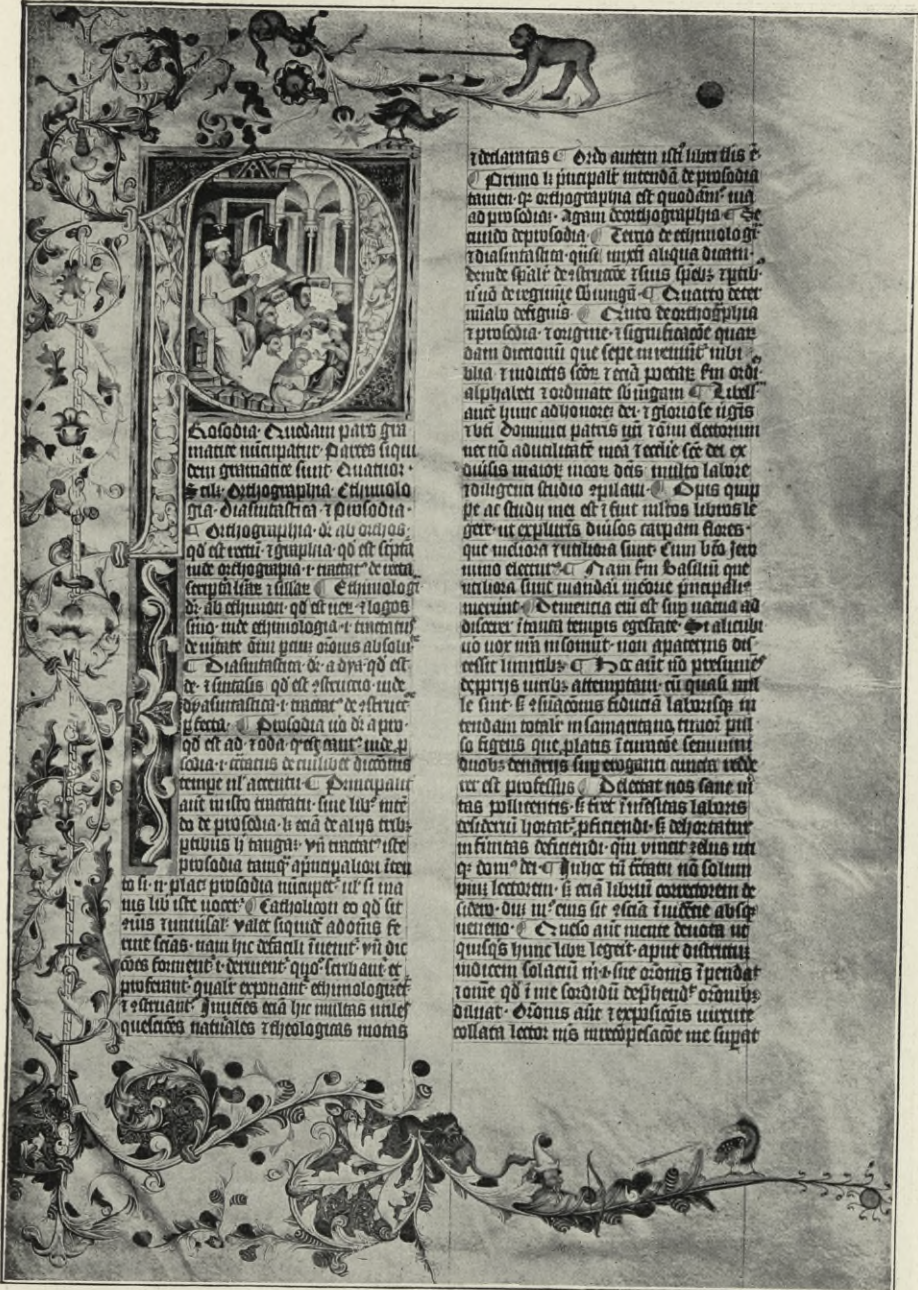 Rosodia Quedam pars gra
matice nūcupatur. Partes siqui
dem gramatice sunt Quatuor.
Scilʒ Orthographia Ethimolo
gia. Diasintastica. ⁊ Prosodia.
¶ Orthographia. dr̄ ab orthos.
qd̄ est rectū. ⁊ graphia. qd̄ est
inde orthographia. i. tractatꝰ de recta
¶ Ethimologi
dr̄ ab ethimon. qd̄ est uer. ⁊ logos
ẜmo. inde ethimologia. i. tractatꝰ
de ūitate oīm ꝑtium orōnis absolū
¶ Diasintastica. dr̄. a dya. qd̄ est
de. ⁊ sintasis qd̄ est ꝯstructio. inde
dyasintastica. i. tractatꝰ de
ꝑfecta. ¶ Prosodia ūo dr̄ a pro.
qd̄ est ad. ⁊ oda. inde ꝓ
sodia. i. de cuiuslibet dictionis
accentu. ¶ Principaliẗ
aūt in isto tractatu. siue
do de prosodia. lʒ eciā de alijs tribꝫ
ptibus tangā. vn̄ tractatꝰ iste
prosodia tamqͣ a pͥncipaliori
to si. n. placʒ prosodia nūcupetʳ. ul̓ si ma
nis lib iste uocetʳ. ¶ Catholicon eo qd̄ sit
ꝯis ⁊ uniūsal. valet siquidē ad omēs fe
rme sciās. nam hic de facili vn̄ dic
cōes forment̓. ⁊ deriuent̓. scribant̓. et
proferant̓. qualit̓ exponant̓. ethimologizet̓
⁊ ꝯstruant̓. Inuenies eciā hic multas utiles
questiōes natūales ⁊ theologicas motas
⁊ declaratas ¶ Ordo autem istiꝰ libri tlis ē.
¶ Primo lʒ pͥncipalit̓ intendā de prosodia
tamen. qꝛ orthographia est quodāmꝰ uia
ad prosodiā. Agam de orthographia ¶ Se
cundo de prosodia ¶ Tercio de ethimologīa
⁊ diasintastica. aliqua dicam.
deinde
¶ Quarto deter
minabo de figuris. ¶ Quīto de orthogͣphia
⁊ prosodia. ⁊ origine. ⁊ significacōe quarū
dam dictionū que sepe inueniūt̓ in bi
blia ⁊ in dictis scōꝝ ⁊ eciā poetaꝝ ẜm ordīē
alphabeti ⁊ ordinate sb̄iūgam ¶ Libellū
autē hunc ad honorē dei. ⁊ gloriose ūgīs
⁊ bt̄i Dominici patris nr̄i ⁊ oīum electorum
nec nō ad utilitatē meā ⁊ ecclīe scē dei ex
diūsis maioꝝ meoꝝ dc̄is multo labore
⁊ diligenti studio ꝯpilaui. ¶ Opis quip
pe ac studij mei est ⁊ fuit m̄ltos libros le
gere. ut ex plurīs diūsos carpam flores.
que meliora ⁊ utiliora sunt. Cum bt̄o Jero
nimo ¶ Nam ẜm Basiliū que
utiliora sunt mandari memorie pͥncipalit̓
meruerūt. ¶ Demencia eī est supuacua ad
discere ī tanta tempis egestate. Si alicubi
uo uox mīa insonuit. non aptenus dis
cessit limitibꝫ ¶ Hoc aūt nō presumēs
de pprijs uiribꝫ attemptaui. cū quasi nul
le sint. sʒ fiducia laborisqꝫ in
tendam totalē in samaritano
so figens que platis ī curacōe semiuiui
duobꝫ denarijs suꝑerogantī cuncta redde
re est professus ¶ Delectat nos sane uī
tas pollicentis. sʒ terret īmēsitas laboris
desideriū hortat̓ pficiendi. sʒ dehortatur
infirmitas deficiendi. quā uincit zelus uti
qꝫ domꝰ dei. ¶ In hec tn̄ tractatu nō solum
pium lectorem. sʒ eciā librum correctorem de
sidero. dum ⁊ scīa ī absqꝫ
ueneno. ¶ Queso aūt mente deuota ut
quisqͣs hunc librū legerit. apud districtū
iudicem solaciū m̄. sue orōnis īpendat
⁊ ome qd̄ ī me sordidū depͥhendt̓ orōnibꝫ
diluat. Orōnis aūt ⁊ expositōis uirtute
collata lector m̄s in recōpēsacōe me supat